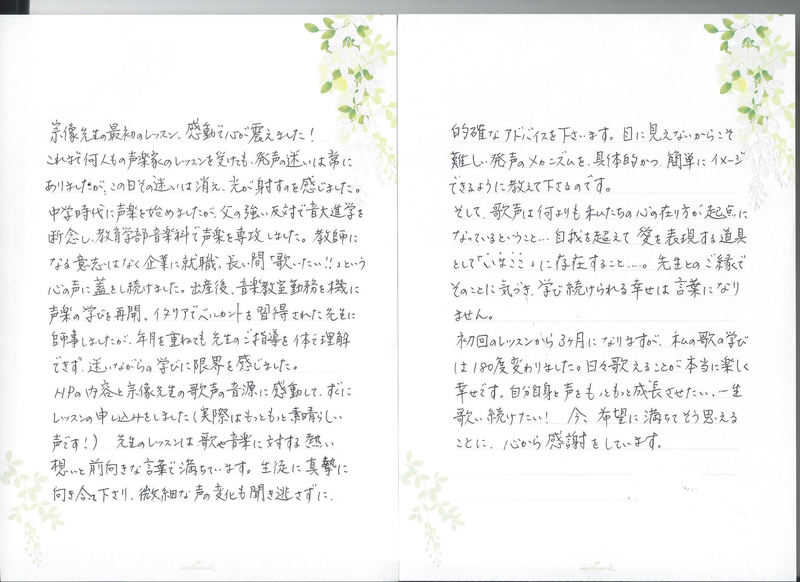 宗像先生の最初のレッスン、感動で心が震えました！
これまで何人もの声楽家のレッスンを受けても、発声の迷いは常に
ありましたが、この日その迷いは消え、光が射すのを感じました。
中学時代に声楽を始めましたが、父の強い反対で音大進学を
断念し、教育学部音楽科で声楽を専攻しました。教師に
なる意志はなく企業に就職。長い間“歌いたい!!”という
心の声に蓋をし続けました。出産後、音楽教室勤務を機に
声楽の学びを再開、イタリアでベルカントを習得された先生に
師事しましたが、年月を重ねても先生のご指導を体で理解
できず、迷いながらの学びに限界を感じました。
HPの内容と宗像先生の歌声の音源に感動して、すぐに
レッスンの申し込みをしました（実際はもっともっと素晴らしい
声です！）　先生のレッスンは歌や音楽に対する熱い
想いと前向きな言葉で満ちています。生徒に真摯に
向き合って下さり、微細な声の変化も聞き逃さずに、
Hallmark
的確なアドバイスを下さいます。目に見えないからこそ
難しい発声のメカニズムを、具体的かつ、簡単にイメージ
できるように教えて下さるのです。
そして、歌声は何よりも私たちの心の在り方が起点に
なっているということ…自我を超えて愛を表現する道具
として「いまここ」に存在すること…。先生とのご縁で
そのことに気づき、学び続けられる幸せは言葉になり
ません。
初回のレッスンから3ヶ月になりますが、私の歌の学び
は180度変わりました。日々歌えることが本当に楽しく
幸せです。自分自身と声をもっともっと成長させたい、一生
歌い続けたい！　今、希望に満ちてそう思える
ことに、心から感謝をしています。
Hallmark